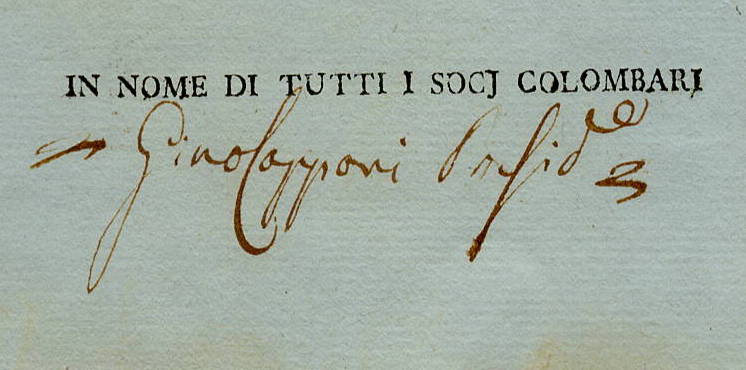 IN NOME DI TUTTI I SOCJ COLOMBARI
Gino Capponi Presid.e